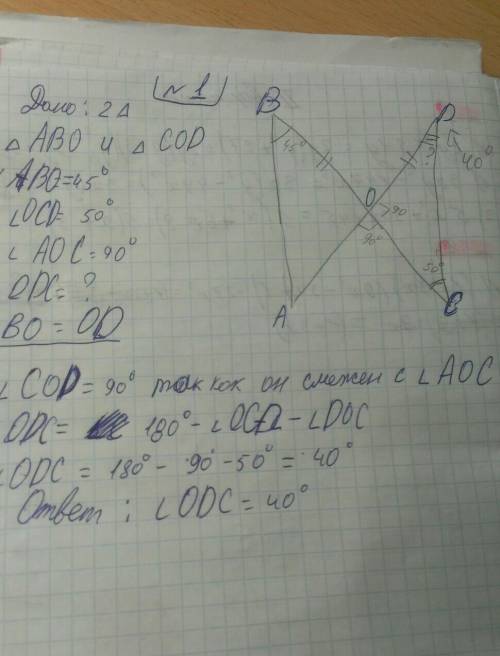 № 1
Дано: 2Δ
Δ ABO и Δ COD
ABO=45°
∠OCD= 50°
∠ AOC=90°
ODC=?
BO = OD
B
45°
D
?
40°
O
90
90°
50°
A
C
∠ COD= 90° так как он смежен с ∠AOC
ODC= 180°- ∠OCD - ∠DOC
∠ODC = 180° - 90° - 50° = 40°
Ответ : ∠ODC = 40°